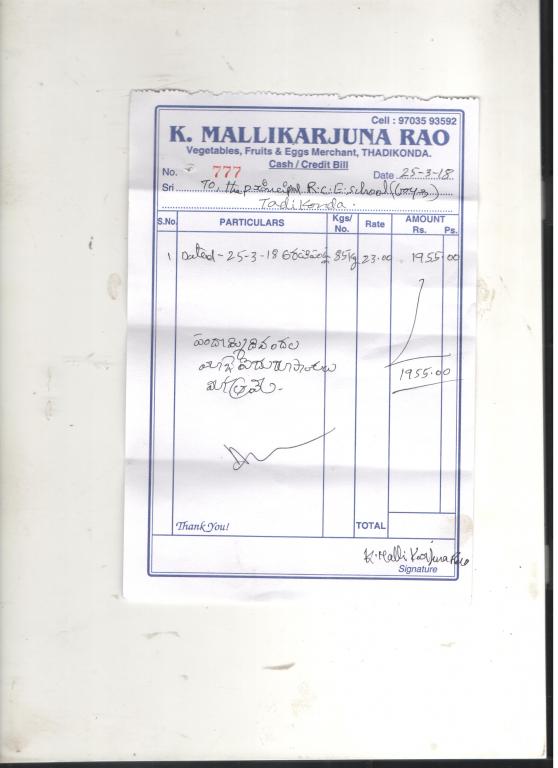 Cell : 97035 93592
K. MALLIKARJUNA RAO
Vegetables, Fruits & Eggs Merchant, THADIKONDA.
Cash / Credit Bill
No. 777 Date 25-3-18
Sri To, the principal R.C.E. school
Tadikonda.
S.No. PARTICULARS Kgs/ No. Rate AMOUNT Rs. Ps.
1 Dated - 25-3-18 85kg 23.00 1955.00
రూపాయలు
మాత్రమే -
1955.00
Thank You! TOTAL
K. Malli Karjuna Rao
Signature